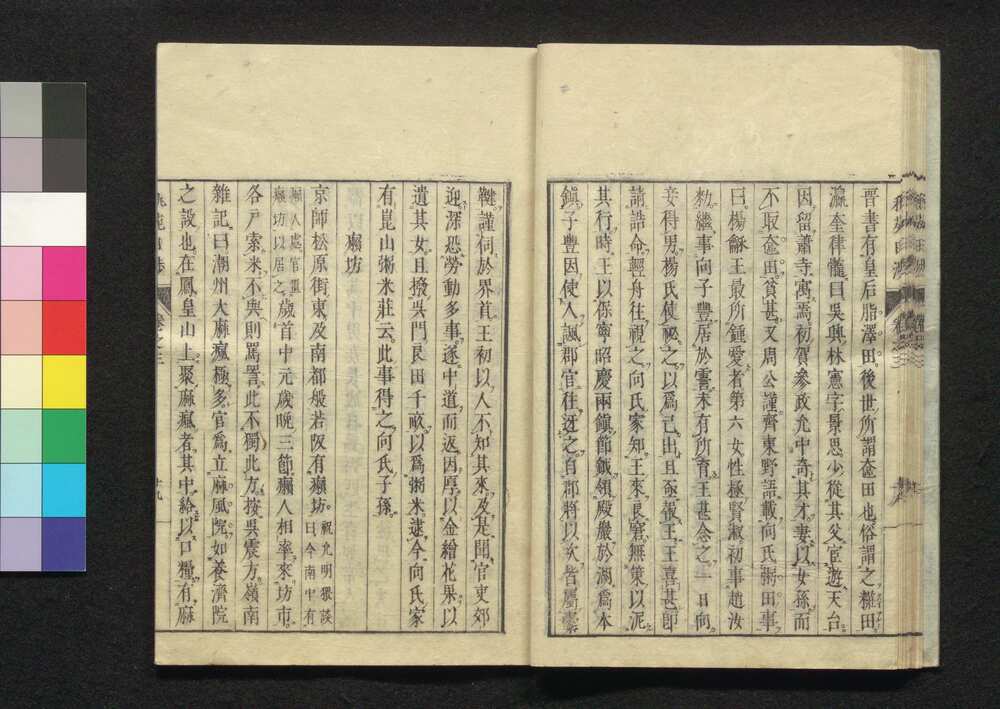 晋書有皇后脂澤田後世所謂奩田也俗謂之糚田
瀛奎律髓曰吳興林憲字景思少從其父宦遊天台
因留蕭寺寓焉初賀參政允中奇其才妻以女孫而
不取奩田貧甚又周公謹齊東野語載向氏粥田事
曰楊龢王最所鍾愛者第六女性極賢淑初事趙汝
勅繼事向子豐居於霅未有所育王甚念之一日向
妾得男楊氏使秘之以爲己出且亟報王王喜甚卽
請誥命輕舟往視之向氏家知王來良窘無策以泥
其行時王以保寧昭慶兩鎭節鉞領殿嚴於湖爲本
鎭子豐因使人諷郡官往迓之自郡將以次皆屬櫜
鞬謹伺於界首王初以人不知其來及是聞官吏郊
迎深恐勞動多事遂中道而返因厚以金繒花果以
遺其女且撥吳門良田千畝以爲粥米逮今向氏家
有崑山粥米莊云此事得之向氏子孫
癩坊
京師松原街東及南都般若阪有癩坊祝允明猥談曰今南中有
癩人處官置癩坊以居之歲首中元歲晩三節癩人相率來坊市
各戶索米不與則罵詈此不獨此方按吳震方嶺南
雜記曰潮州大麻瘋極多官爲立麻風院如養濟院
之設也在鳳皇山上聚麻瘋者其中給以口糧有麻